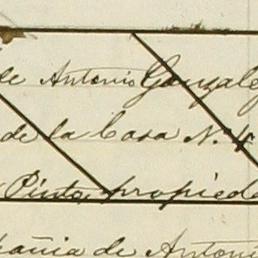 de Antonio Gonzalez
de la Casa N. 4
Pinto, propieda
pañia de Antoni